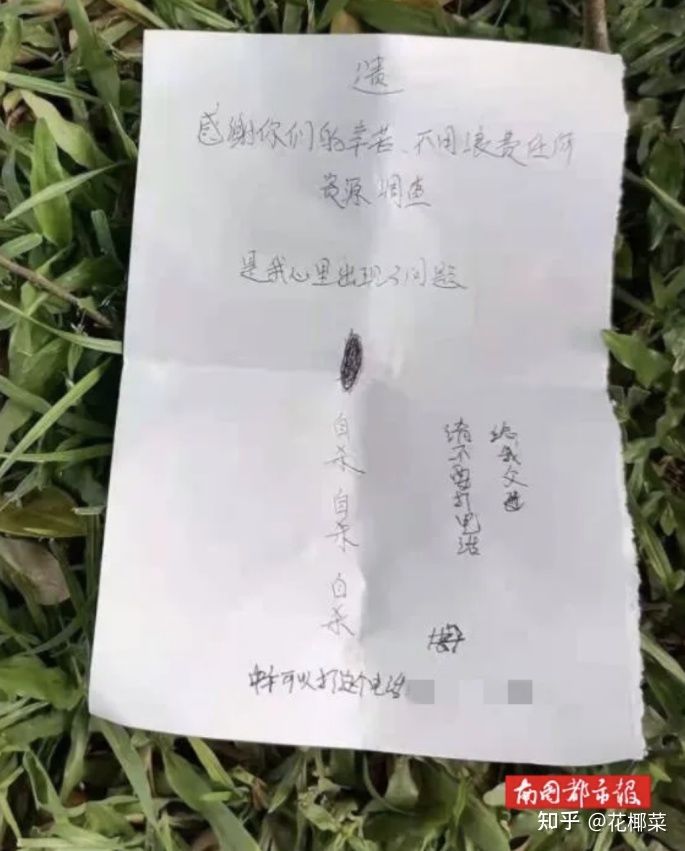 遗
感谢你们的辛苦、不用浪费任何
资源调查
是我心里出现了问题
自杀
自杀
自杀
请不要打电话
给我父母
可以打这个电话
南国都市报
知乎 @花椰菜